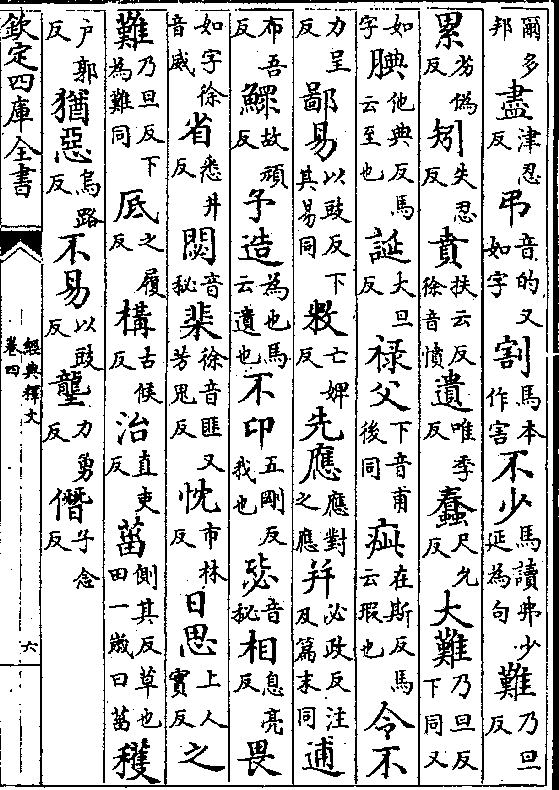 爾多邦盡津忍反弔音的又如字割馬本作害不少馬讀弗少延為句難乃旦反
累劣偽反矧失忍反賁扶云反徐音憤遺唯季反蠢尺允反大難乃旦反下同又
如字腆他典反馬云至也誕大旦反祿父下音甫後同疵在斯反馬云瑕也令不
力呈反鄙易以豉反下其易同敉亡婢反先應應對之應并必政反注及篇末同逋
布吾反鰥故頑反予造為也馬云遺也不卬五剛反我也毖音祕相息亮反畏
如字徐音威省悉井反閟音祕棐徐音匪又芳鬼反忱市林反日思上人實反之
難乃旦反下為難同厎之履反構古候反治直吏反菑側其反草也田一歲曰菑穫
户郭反猶惡烏路反不易以豉反壟力勇反僭子念反
欽定四庫全書
經典釋文
卷四
六